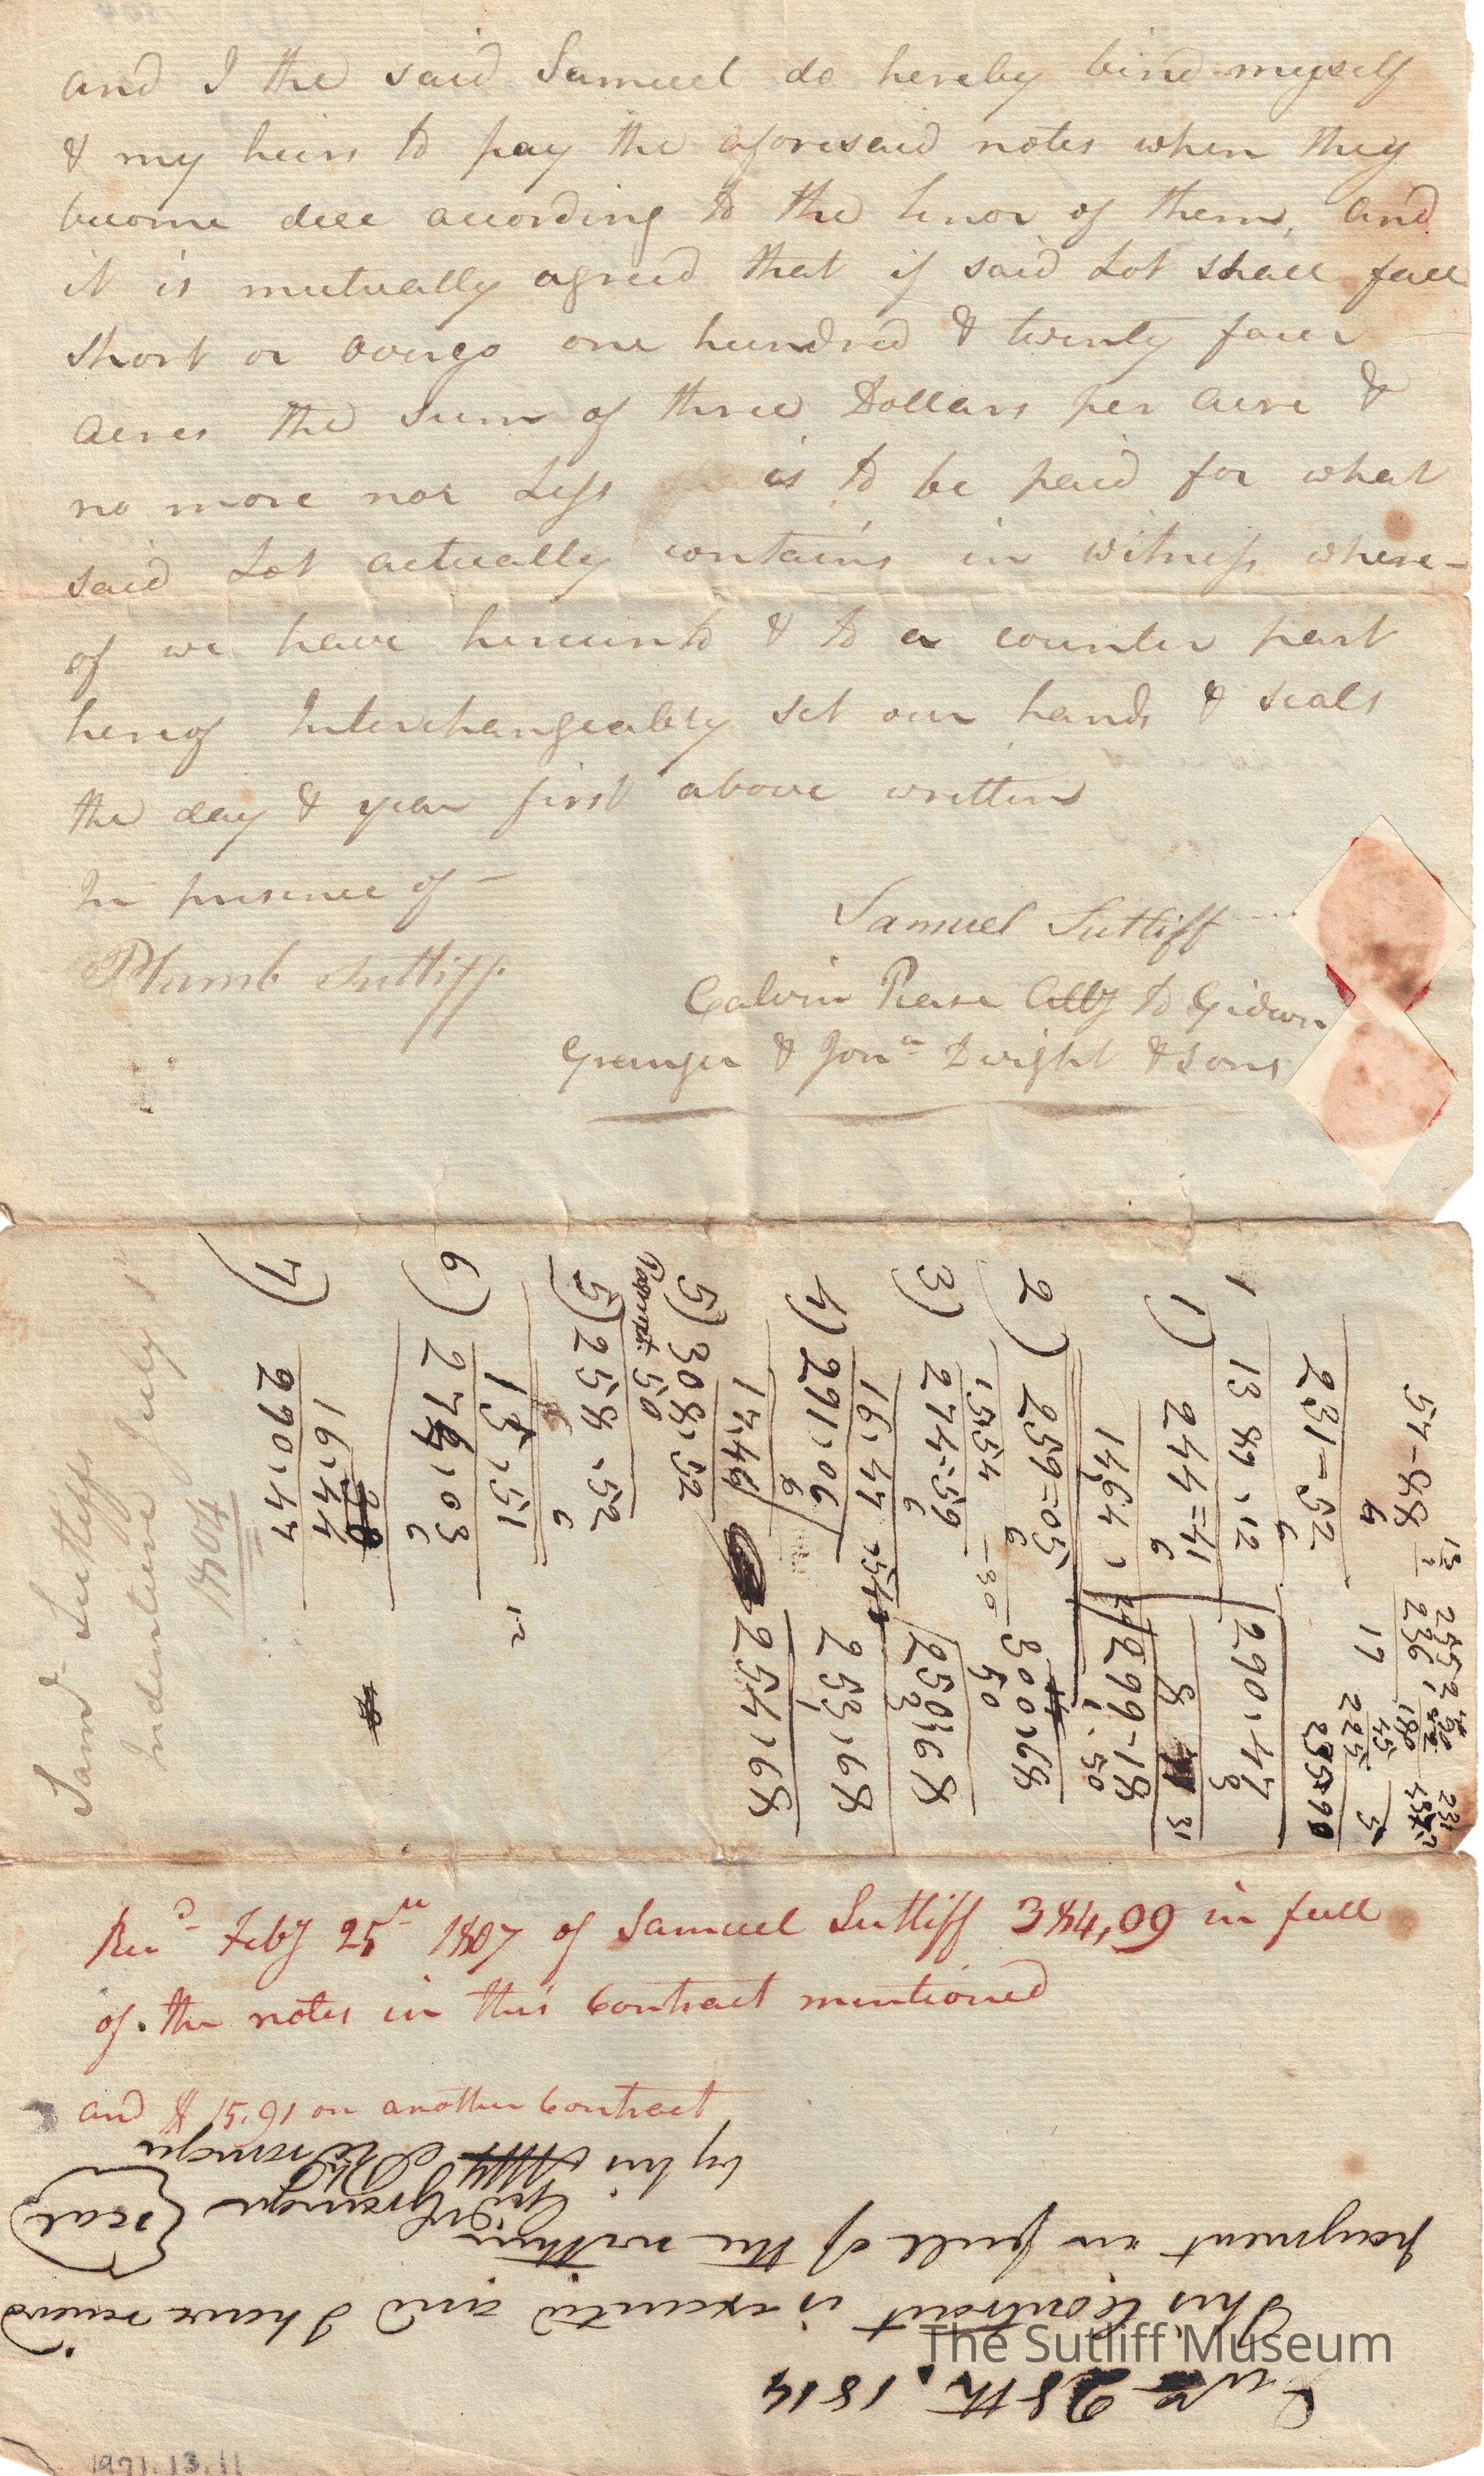 and I the said Samuel do hereby bind myself
& my heirs to pay the aforesaid notes when they
become due according to the tenor of them, and
it is mutually agreed that if said Lot shall fall
short or overgo one hundred & twenty four
acres the sum of three Dollars per acre &
no more nor Less is to be paid for what
said Lot actually contains in witness where-
of we have hereunto & to a counter part
hereof Interchangeably set our hands & seals
the day & year first above written
In presence of —
Samuel Sutliff
Plumb Sutliff
Calvin Pease Atty to Gideon
Granger & Jona Dwight & Sons
57-88
6
231=52
6
1 13 89,12
1) 244=41
6
14,64,
2) 259=05
6
15,54
3) 274=59
6
16,47,54
4) 291,06
6
17,46
5) 308,52
Payment 50
5) 258,52
6
15,51
6) 274,03
6
16,44
7) 290,47
17
225
290,47
8
299-18
1.50
300,68
50
250,68
3
253,68
1
254,68
Samd Sutliffs
Indenture July 1st
1804
Recd Feby 25th 1807 of Samuel Sutliff 384,09 in full
of the notes in this Contract mentioned
and $15.91 on another Contract
June 28th, 1814
This Contract is executed and I have received
payment in full of the within
Gidn Granger Seal
by his Atty
The Sutliff Museum
1971.13.11